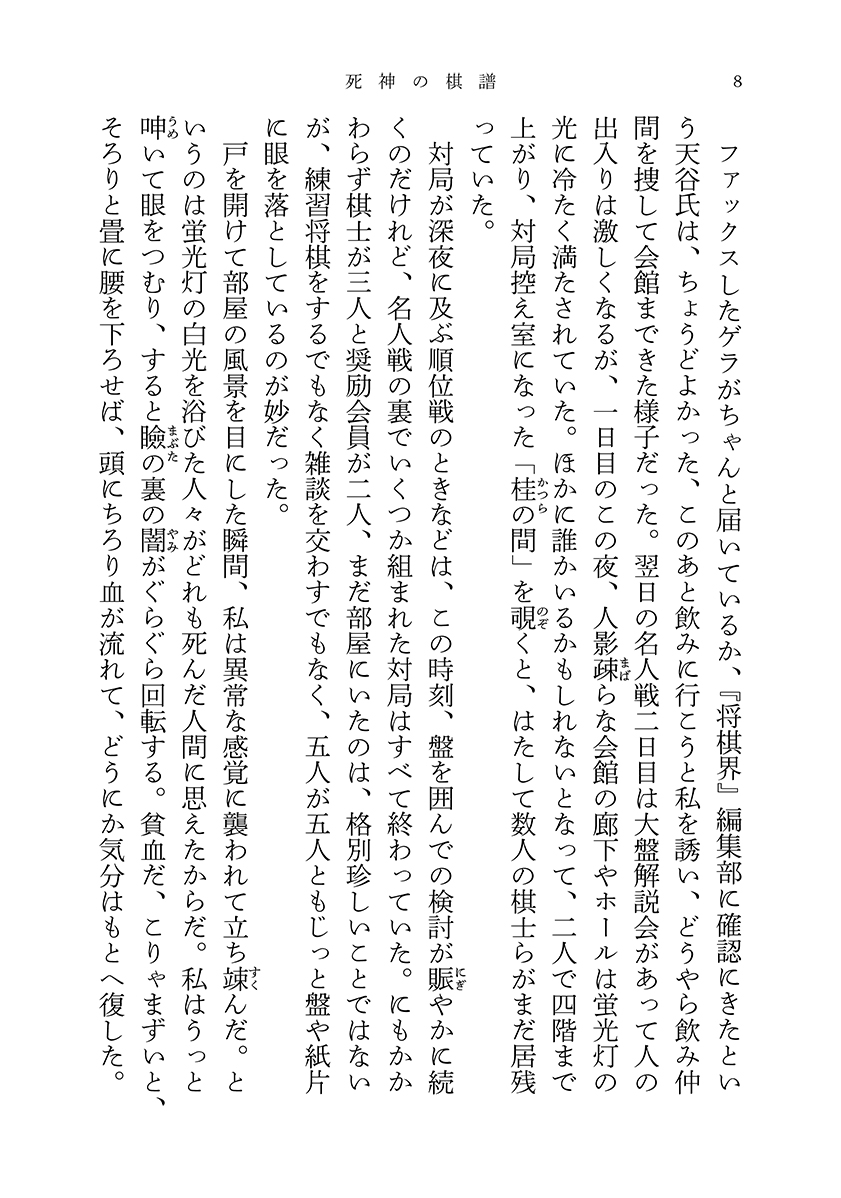 死神の棋譜
8
ファックスしたゲラがちゃんと届いているか、『将棋界』編集部に確認にきたとい
う天谷氏は、ちょうどよかった、このあと飲みに行こうと私を誘い、どうやら飲み仲
間を捜して会館まできた様子だった。翌日の名人戦二日目は大盤解説会があって人の
出入りは激しくなるが、一日目のこの夜、人影疎らな会館の廊下やホールは蛍光灯の
光に冷たく満たされていた。ほかに誰かいるかもしれないとなって、二人で四階まで
上がり、対局控え室になった「桂の間」を覗くと、はたして数人の棋士らがまだ居残
っていた。
対局が深夜に及ぶ順位戦のときなどは、この時刻、盤を囲んでの検討が賑やかに続
くのだけれど、名人戦の裏でいくつか組まれた対局はすべて終わっていた。にもかか
わらず棋士が三人と奨励会員が二人、まだ部屋にいたのは、格別珍しいことではない
が、練習将棋をするでもなく雑談を交わすでもなく、五人が五人ともじっと盤や紙片
に眼を落としているのが妙だった。
戸を開けて部屋の風景を目にした瞬間、私は異常な感覚に襲われて立ち竦んだ。と
いうのは蛍光灯の白光を浴びた人々がどれも死んだ人間に思えたからだ。私はうっと
呻いて眼をつむり、すると瞼の裏の闇がぐらぐら回転する。貧血だ、こりゃまずいと、
そろりと畳に腰を下ろせば、頭にちろり血が流れて、どうにか気分はもとへ復した。